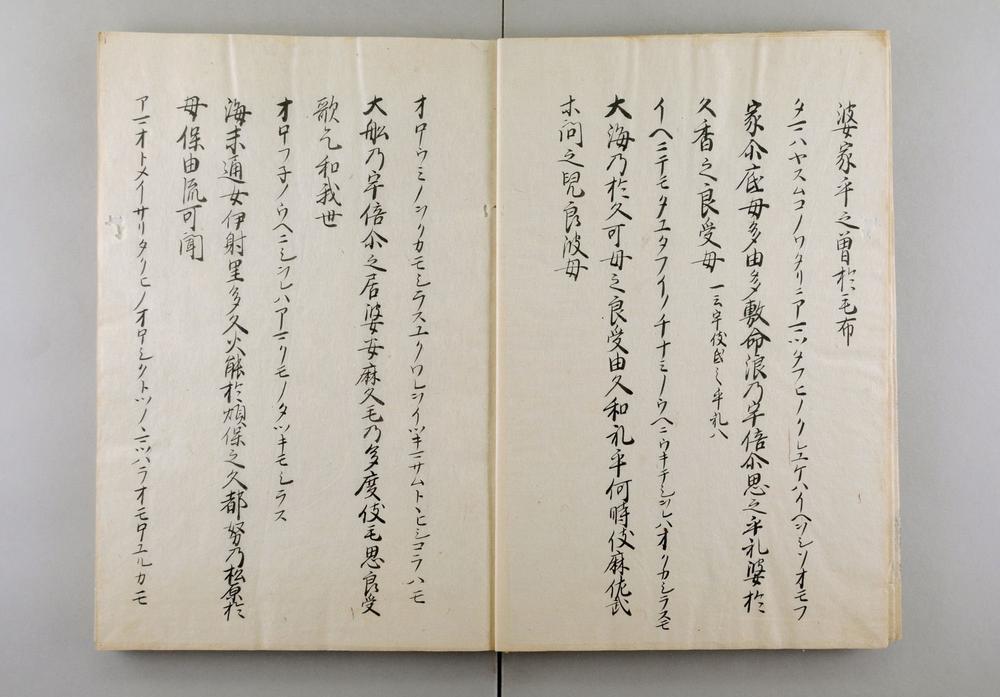 婆家乎之曽於毛布
タマハヤスムコノワタリニアマツタフヒノクレユケハイヘヲシソオモフ
家尓底母多由多敷命浪乃宇倍尓思之乎礼婆於
久香之良受母 一云宇伎氐之乎礼八
イヘニテモタユタフイノチナミノウヘニウキテシヲレハオクカシラスモ
大海乃於久可母之良受由久和礼乎何時伎麻佐武
等問之児良波母
オホウミノオクカモシラスユクワレヲイツキマサムトトヒシコラハモ
大船乃宇倍尓之居婆安麻久毛乃多度伎毛思良受
歌乞和我世
オホフネノウヘニシヲレハアマクモノタツキモシラス
海未通女伊射里多久火能於煩保之久都努乃松原於
母保由流可聞
アマオトメイサリタクヒノオホヽシクトツノヽマツハラオモホユルカモ